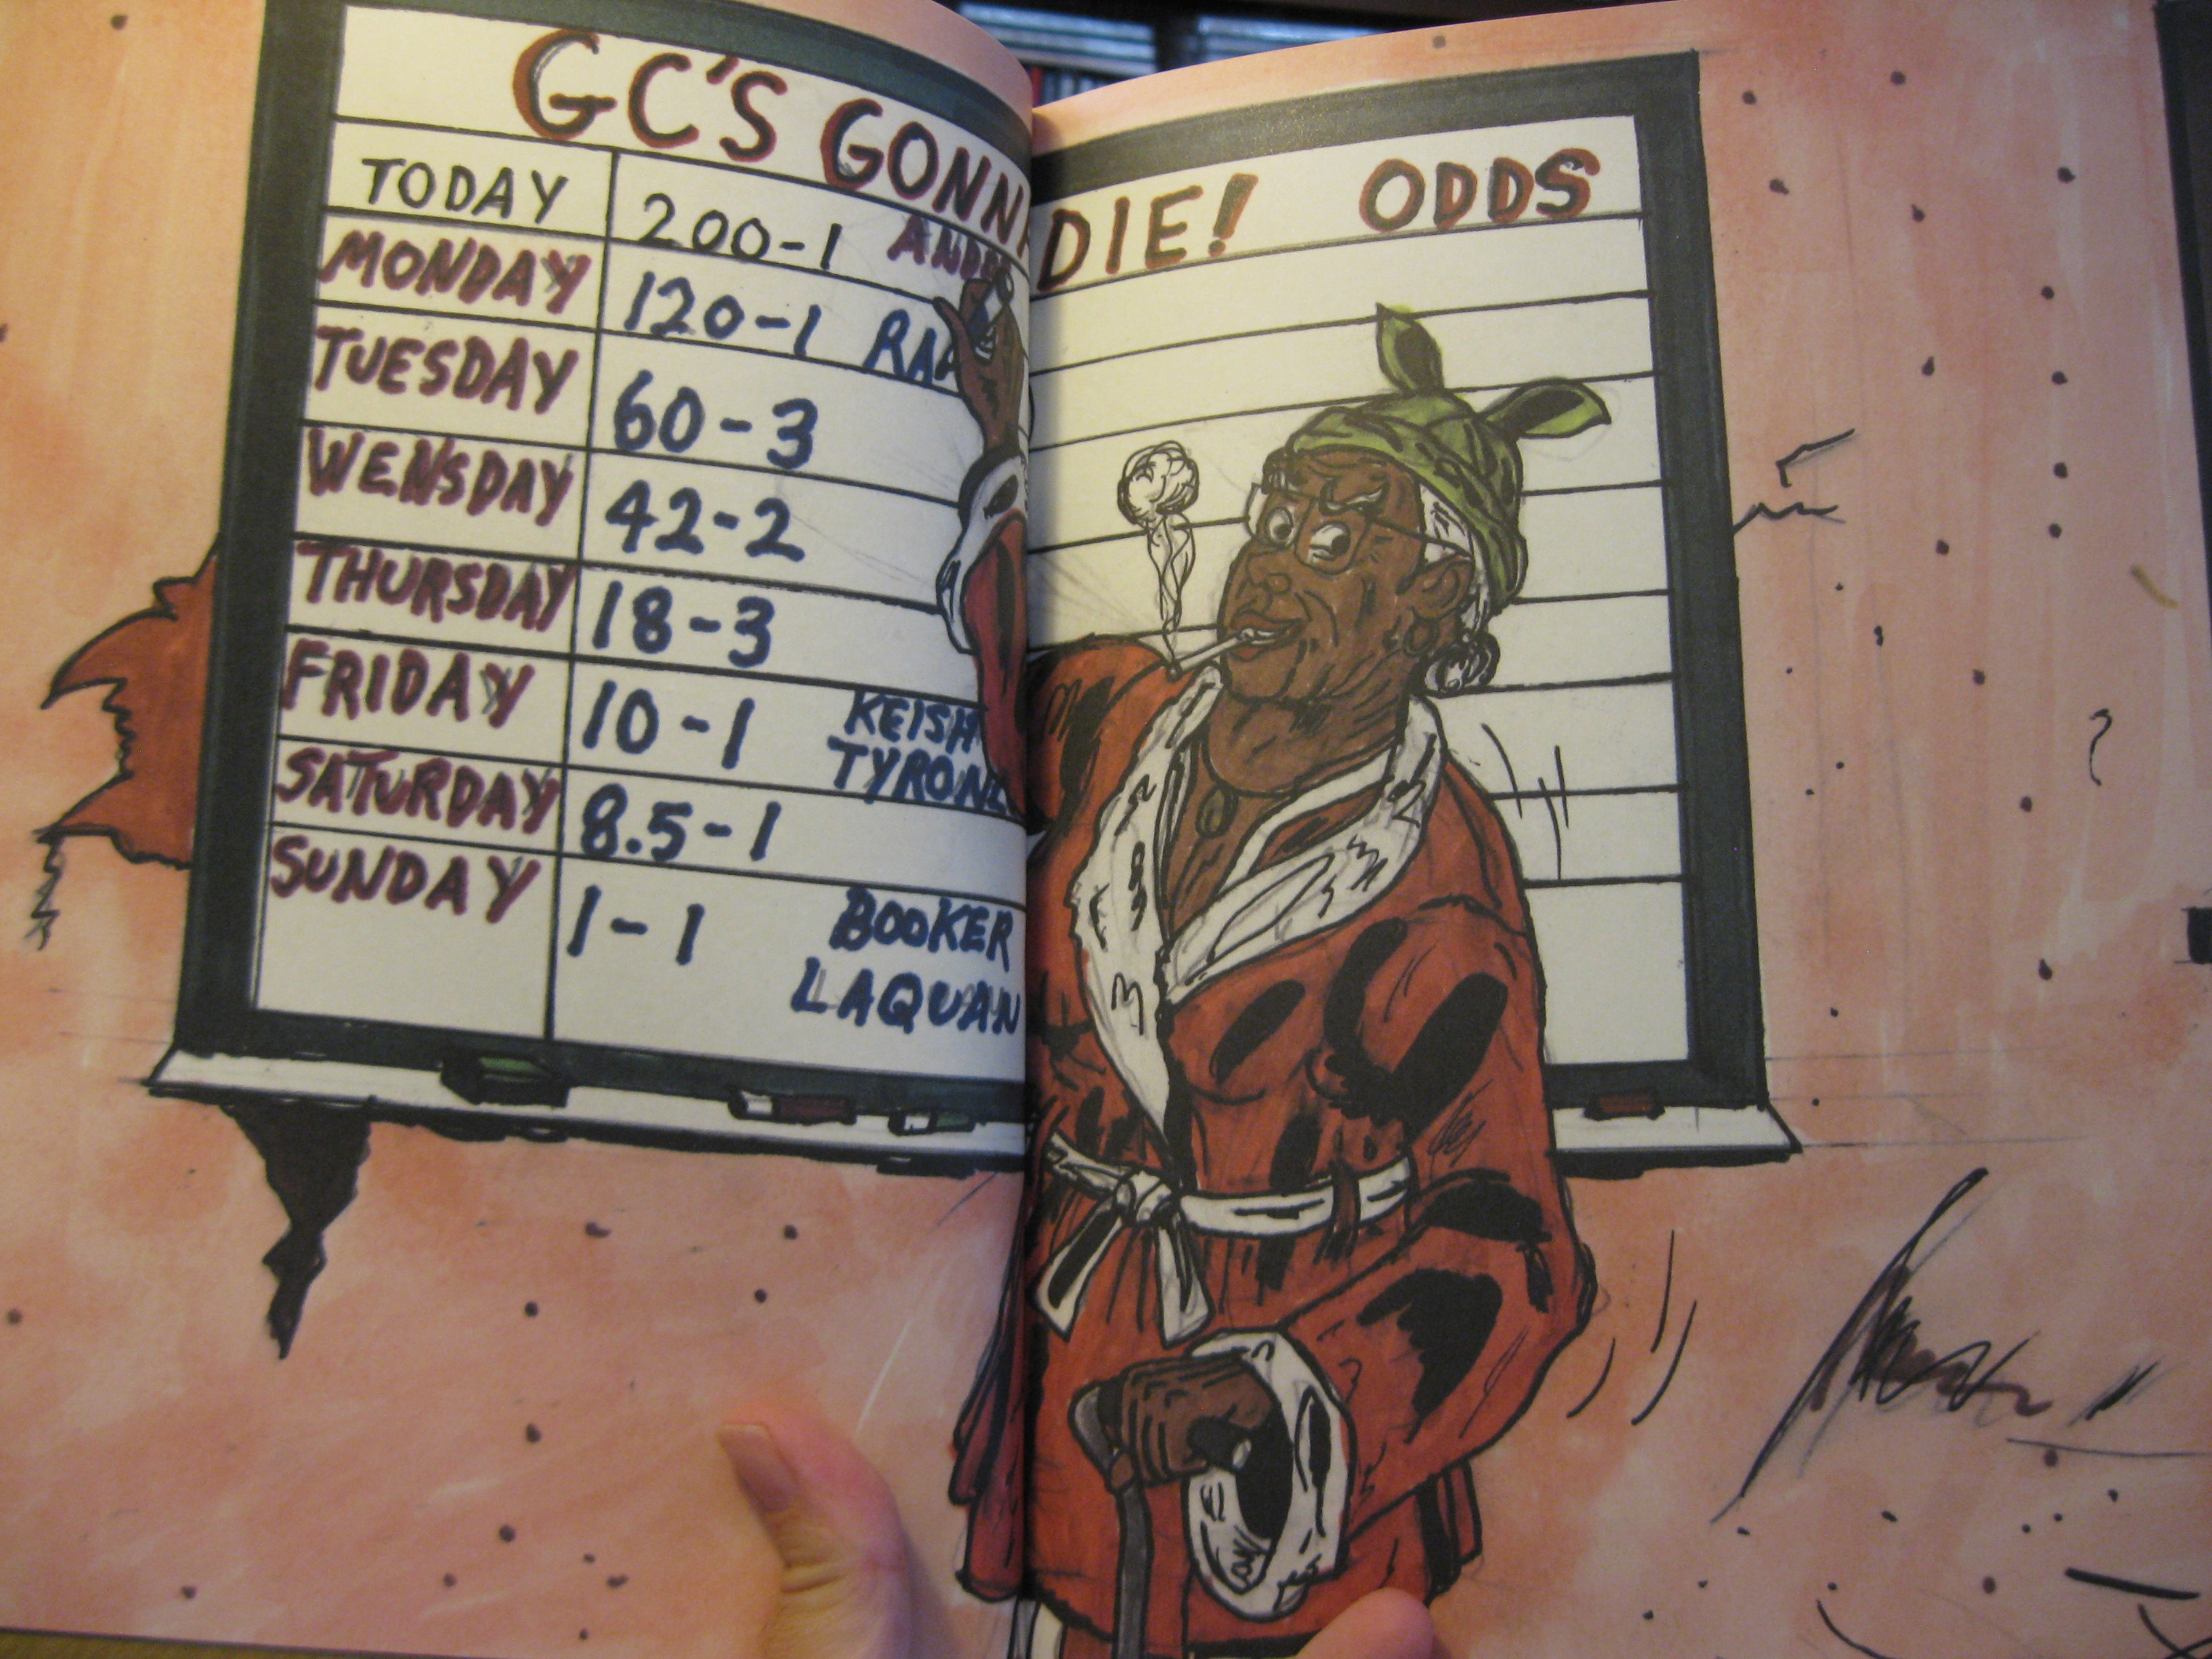 GC'S GONN DIE! ODDS
TODAY 200-1
MONDAY 120-1
TUESDAY 60-3
WENSDAY 42-2
THURSDAY 18-3
FRIDAY 10-1 KEISH
TYRONE
SATURDAY 8.5-1
SUNDAY 1-1 BOOKER
LAQUAN